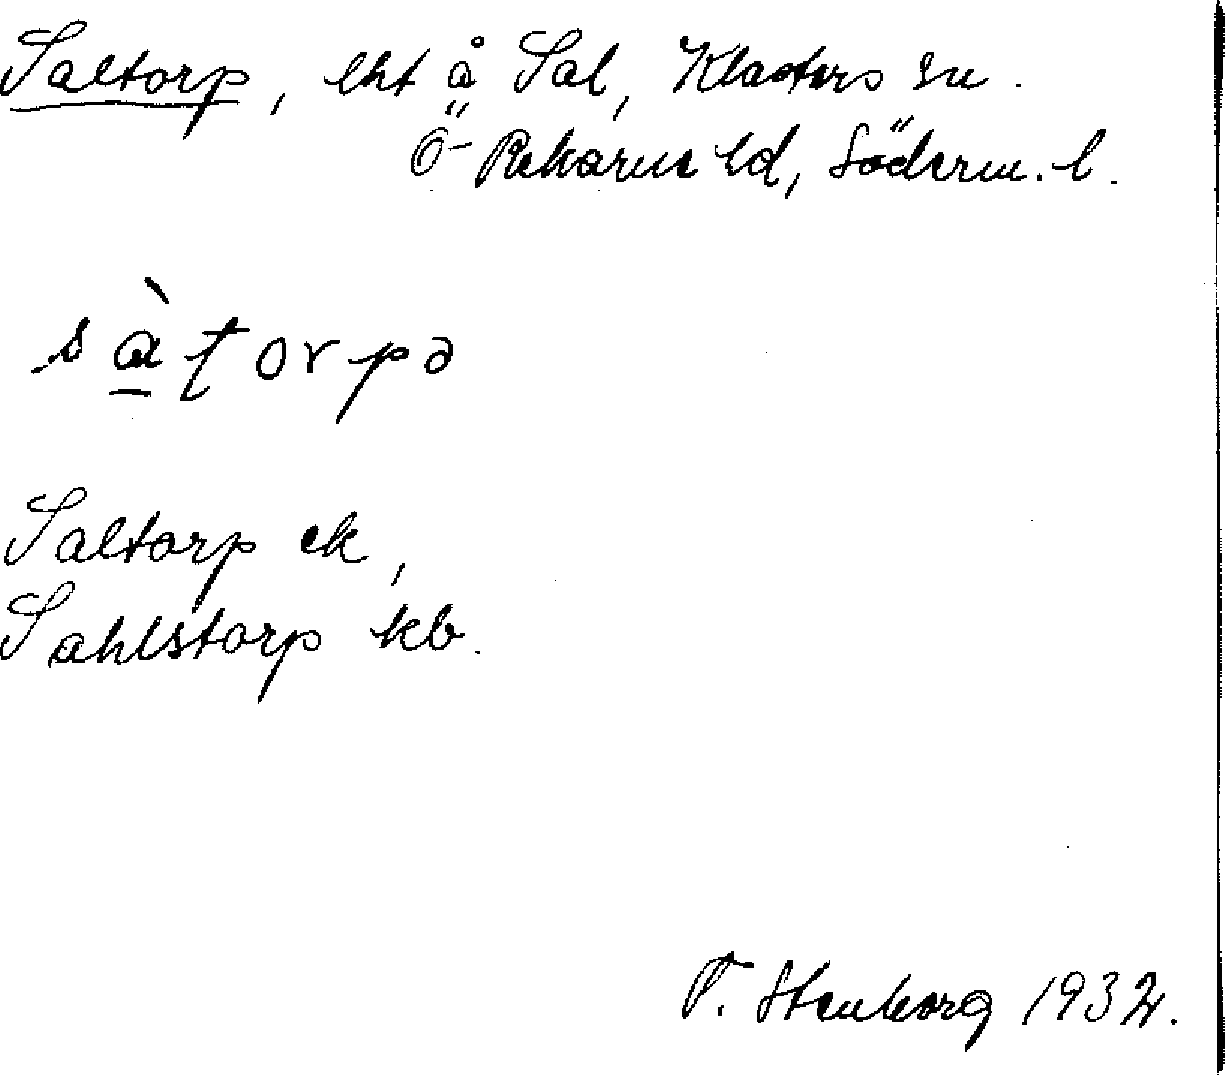 Saltorp, lht å Sal, Klosters sn.
Ö-Rekarne hd, Söderm. l.
sàtorpə
Saltorp ek,
Sahlstorp kb.
F. Stenborg 1932.